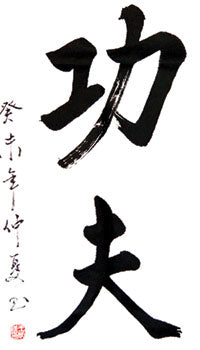 功夫
癸未年仲夏书